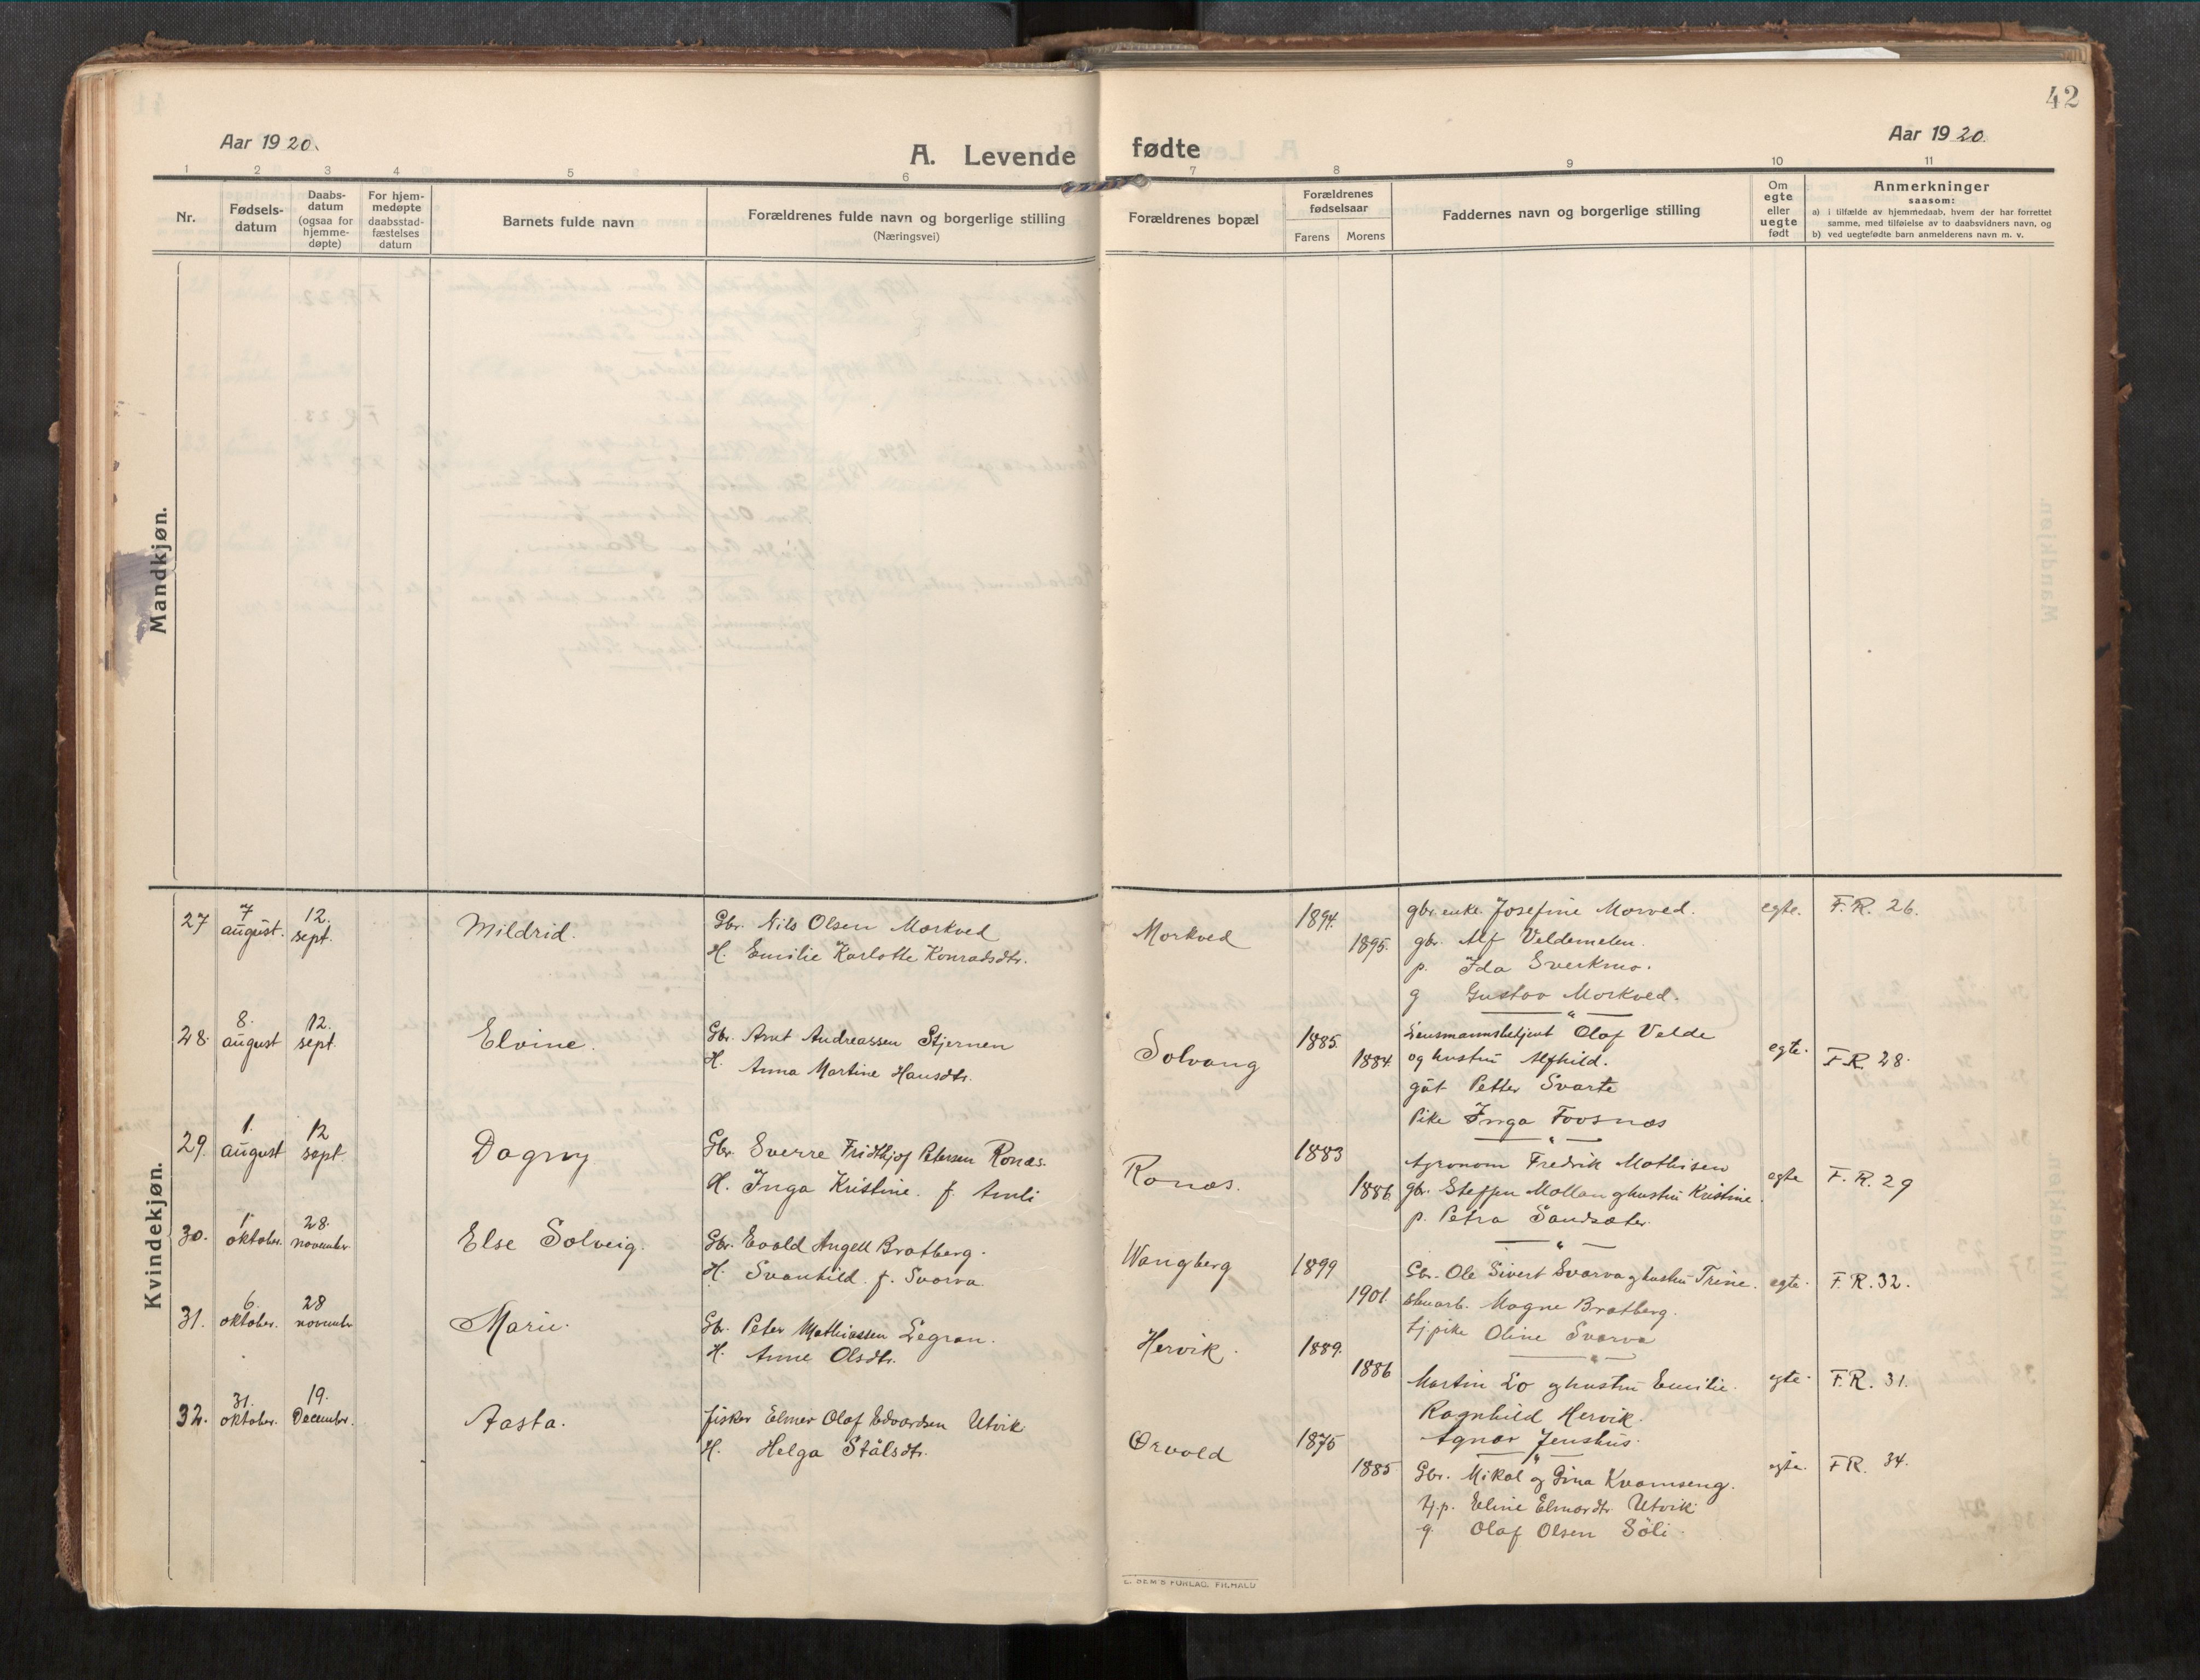 42
Aar 1920.
A. Levende fødte
Aar 1920.
1 2 3 4 5 6 7 8 9 10 11
Nr.
Fødsels-
datum
Daabs-
datum
(ogsaa for
hjemme-
døpte)
For hjem-
medøpte
daabsstad-
fæstelses
datum
Barnets fulde navn
Forældrenes fulde navn og borgerlige stilling
(Næringsvei)
Forældrenes bopæl
Forældrenes
fødselsaar
Farens Morens
Faddernes navn og borgerlige stilling
Om
egte
eller
uegte
født
Anmerkninger
saasom:
a) i tilfælde av hjemmedaab, hvem der har forrettet
samme, med tilføielse av to daabsvidners navn, og
b) ved uegtefødte barn anmelderens navn m. v.
Mandkjøn.
Kvindekjøn.
27 7 august. 12. sept. Mildrid.
Gbr. Nils Olsen Morkved
H. Emilie Karlotte Konradsdtr.
Morkved 1894. 1895.
gbr. enke. Josefine Morved.
gbr. Alf Veldemelen.
p. Ida Sverkmo.
g Gustav Morkved.
egte. F.R. 26.
28. 8. august 12. sept. Elvine.
Gbr. Arnt Andreassen Stjernen
H. Anna Martine Hansdtr.
Solvang 1885. 1884.
Lensmannsbetjent Olaf Velde
og hustru Alfhild.
gut Petter Svarte
Pike Inga Foosnæs
egte. F.R. 28.
29. 1. august 12 sept. Dagny
Gbr. Sverre Fridthjof Petersen Ronæs.
H. Inga Kristine. f. Amli
Ronæs. 1883 1886
Agronom Fredrik Mathisen
gbr. Steffen Mollan og hustru Kristine.
p. Petra Sandsæter.
egte F.R. 29
30. 1. oktober. 28. november Else Solveig.
Gbr. Evald Angell Bratberg.
H. Svanhild. f. Svarva
Wangberg 1899 1901.
Gbr. Ole Sivert Svarva og hustru Trine.
Magne Bratberg.
tj. pike Oline Svarva
egte. F.R. 32.
31. 6. oktober. 28 november Marie.
Gbr. Peter Mathiassen Legran.
H. Anne Olsdtr.
Hervik. 1889. 1886
Martin Lo og hustru Emilie.
Ragnhild Hervik.
Agnar Jenshus.
egte. F.R. 31.
32. 31. oktober. 19. December. Aasta.
fisker Elmer Olaf Edvardsen Utvik
H. Helga Stålsdtr.
Ørvold 1875 1885
Gbr. Mikal og Gina Kvamseng.
tj.p. Eline Elmardtr. Utvik.
g. Olaf Olsen Söli.
egte. F.R. 34.